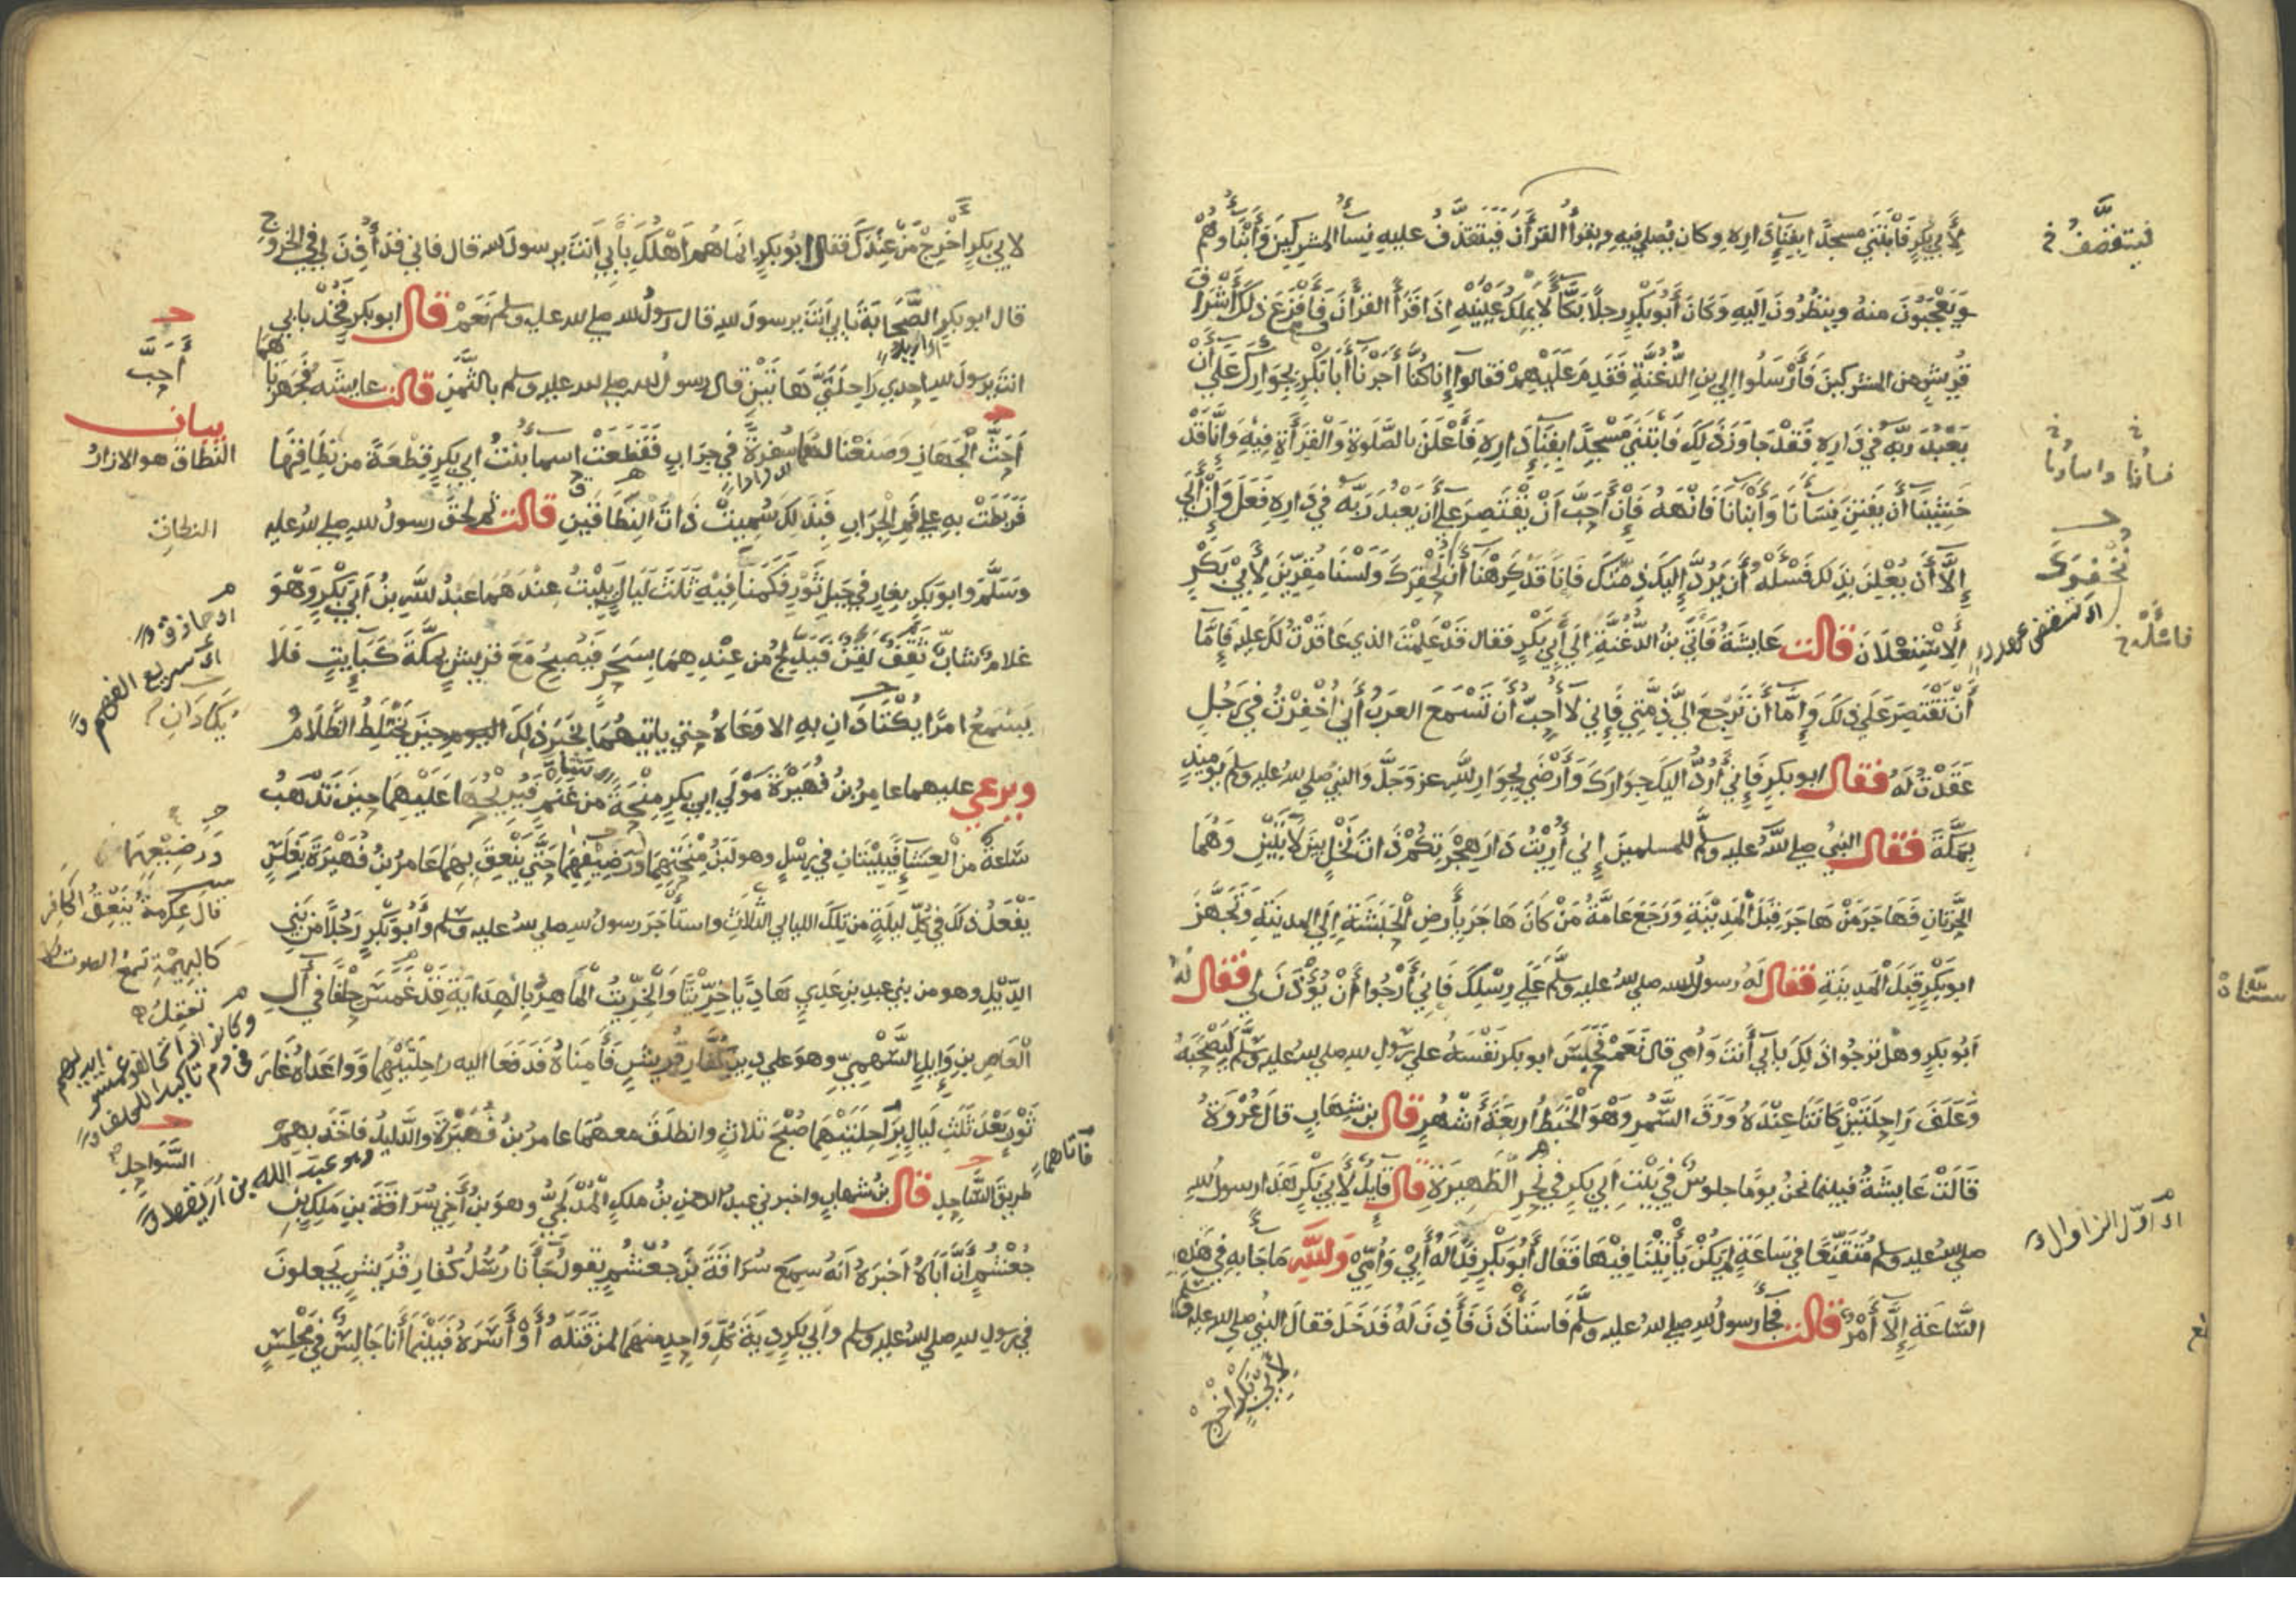 لِأَبِي بَكْرٍ فَابْتَنَى مسجدًا بِفِنَاءِ دَارِهِ وكان يُصلي فيهِ ويقرأُ القرآنَ فَيَتَقَذَّفُ عليهِ نِسَاءُ المشركينَ وَأَبْنَاؤهُمْ
وَيَعْجَبُونَ منهُ وينظُرُونَ اِلَيهِ وَكَانَ أَبُو بَكْرٍ رجلًا بَكَّاءً لَا يَمْلِكُ عَيْنَيْهِ اِذَا قَرَأَ القرْآنَ فَأَفْزَعَ ذلكَ أَشْرَافَ
قُرَيشٍ من المشركينَ فَأَرْسَلُوا إلى بنِ الدُّغُنَّةِ فَقَدِمَ عَلَيْهِمْ فقالوا إِنا كُنَّا أَجَرْنَا أَبَا بَكْرٍ بِجِوَارِكَ عَلَى أَنْ
يَعْبُدَ رَبَّهُ فِي دَارِهِ فَقَدْ جاوَزَ ذَلِكَ فَابتَنَى مَسْجِدًا بِفِنَاءِ دَارِهِ فَأَعْلَنَ بالصَّلَوةِ وَالْقِرَأَةِ فِيهِ وَإِنَّا قَدْ
خَشِيْنَا أَن يَفْتِنَ نِسَآءَنَا وَأَبْنَاءَنَا فَانْهَهُ فَإِنْ أَحَبَّ اَنْ يَقْتَصِرَ عَلَى أَن يَعْبُدَ رَبَّهُ في دَارِهِ فَعَلَ وَإِنْ أَبَى
إِلَّا أَن يُعْلِنَ بِذَلِكَ فَسَلْهُ أَن يَرُدَّ إِلَيكَ ذِمَّتَكَ فَإِنا قَدْ كَرِهْنَا أَن نُخْفِرَكَ وَلَسْنَا مُقِرِّينَ لِأَبِيْ بَكْرٍ
اِلاِسْتِعْلَانَ قالت عَايشَةُ فَأَتَى بنُ الدُّغُنَّةِ إلَى أَبِي بَكْرٍ فقال قَدْ عَلِمْتَ الذي عَاقَدْتُ لَكَ عليهِ فَإِمَّا
أَنْ تَقْتَصِرَ عَلَى ذلكَ وَإِمَّا أَن تَرْجِعَ اِلَيَّ ذِمَّتِي فَإِني لَا أُحِبُّ أَن تَسْمَعَ العَرَبُ أَنِي أُخْفِرْتُ في رَجُلٍ
عَقَدْتُ لَهُ فقال ابو بكرٍ فَإِنِي أَرُدُّ اليكَ جِوَارَكَ وَأَرْضَى بِجِوَارِ للهِ عز وجَلَّ والنبيُّ صلى للهُ عليهِ وسلمَ يومَيِذٍ
بِمَكَّةَ فقال النبيُ صلى للهُ عليهِ وسلَّم للمسلمينَ إني أُرِيْتُ دَارَ هِجْرَتِكُمْ ذَاتَ نَخْلٍ بَيْنَ لَابَتَيْنِ وَهُمَا
الحَرَّتَانِ فَهَاجَرَ مَنْ هَاجَرَ قِبَلَ الْمَدِيْنَةِ وَرَجَعَ عَامَّةُ مَنْ كَانَ هَاجَرَ بِأَرضِ الْحَبَشَةِ إِلَى المدِينَةِ وَتَجَهَّزَ
ابو بَكْرٍ قِبَلَ الْمَدِينَةِ فقال لَهُ رسولُ الله صلى للهُ عليهِ وسلَّمَ عَلَى رِسْلِكَ فَاِنِي أَرْجُوا أَنْ يُؤْذَنَ لي فقال لَهُ
اَبُو بكرٍ وهلْ تَرجُوا ذَلِكَ بأَبي أَنتَ وَأُمي قالَ نَعَمْ فَحَبَسَ ابو بكر نَفْسَهُ على رَسُولِ للهِ صلى للهُ عليهِ وسلَّمَ لِيَصْحَبَهُ
وَعَلَفَ رَاحِلَتَيْنِ كَانَتَا عِنْدَهُ وَرَقَ السَّمُرِ وَهْوَ الْخَبَطُ اربَعَةَ أَشْهُرٍ قال بن شِهَابٍ قال عُرْوَةُ
قَالَتْ عَايشَةُ فبينما نحنُ يومًا جلوسٌ في بَيْتِ اَبِي بَكرٍ في نَحْرِ الظَّهِيرَةِ قال قَايِلٌ لِأَبِي بَكْرٍ هَذَا رسولُ للهِ
صلى للهُ عليهِ وسلم مُتَقَنِّعًا في سَاعَةٍ لم يَكُنْ يَأْتِيْنَا فِيْهَا فَقَالَ أَبُو بَكْرٍ فِدًا لَهُ أَبِيْ وَأُمِّيْ وَللّهِ مَا جَا بِهِ فِي هَذِهِ
السَّاعَةِ إِلَّا أَمْرٌ قالت فَجَاءَ رسولُ للهِ صلى للهُ عليهِ وسلَّم فَاسْتَأْذَنَ فَأُذِنَ لَهُ فَدَخَلَ فقالَ النبيُ صلى للهُ عليهِ وسلم
لِأَبِيْ بَكْرٍ اخْرِجْ
فيتقصَّفُ خ
نساؤنا وابناؤنا
نُخْفِرَكَ
اى ننقض عهدك
فاسْأَلْهُ خ
اى اوّل الزوال
لابي بَكرٍ أَخْرِجْ مَنْ عِنْدَكَ فقال ابُو بكرٍ انمَا هُم اَهْلُكَ بِأَبِي اَنتَ يرسولَ للهِ قال فاني قد أُذِنَ لي في الخُرُوجِ
قال ابو بكرٍ الصَّحَابَةَ بأبي اَنتَ يرسولَ للهِ قال رسولُ للهِ صلى للهُ عليهِ وسلم نَعَمْ قال ابو بكرٍ فَخُذْ بابي
انتَ يرسولَ للهِ اِحدى رَاحِلَتَيَّ هَاتَيْنِ قال رسولُ للهِ صلى للهُ عليهِ وسلم بالثَّمَنِ قالت عايشَه فَجَهَّزْنَاهُمَا
اَحَثَّ الْجَهَازِ وَصَنَعْنَا لهُمَا سُفرَةً فِي جِرَابٍ فَقَطَعَتْ اسمآءُ بنتُ ابي بكرٍ قِطعَةً من نِطَاقِهَا
فَرَبَطَتْ بهِ على فَمِ الجِرَابِ فَبِذَلِكَ سُمِّيتْ ذَاتَ النِّطَاقَيْنِ قالت ثم لَحِقَ رسولُ للهِ صلى للهُ عليهِ
وَسَلَّمَ وابو بَكرٍ بغارٍ في جبلِ ثَوْرٍ فَكَمَنَا فِيْهِ ثَلَثَ لَيَالٍ يَبِيْتُ عِنْدَهُمَا عبدُ للهِ بنُ أَبِيْ بَكْرٍ وَهْوَ
غلامٌ شابٌّ ثَقِفٌ لَقِنٌ فَيَدَّلِجُ من عِنْدِهِمَا بِسَحَرٍ فَيُصْبِحُ مَعَ قريشٍ بِمكَّةَ كَبَايِتٍ فَلَا
يَسمَعُ امرًا يُكْتَادَانِ بِهِ الا وَعَاهُ حتى ياتِيَهُمَا بِخَبَرِ ذَلِكَ اليوم حِينَ يَخْتَلِطُ الظَّلَامُ
ويرعى عليهما عامِرُ بنُ فُهَيْرَةَ مَوْلَى ابي بكرٍ مِنْحَةً من غَنَمٍ فَيُرِيْحُهَا عَلَيْهِمَا حِينَ تَذْهَبُ
سَاعةٌ منَ العِشَاءِ فَيَبِيْتَانِ في رِسْلٍ وهو لَبَنُ مِنْحَتِهِمَا وَرَضِيْفِهِمَا حَتَّى يَنْعِقَ بِهِمَا عَامرُ بنُ فُهَيْرَةَ بِغَلَسٍ
يَفْعَلُ ذلكَ في كُلِّ ليلَةٍ من تِلكَ الليالي الثلاثِ واستأجَرَ رسولُ للهِ صلى للهُ عليهِ وسلم وَأَبُو بَكْرٍ رَجُلًا من بَنِي
الدِّيْلِ وهو من بنِي عبدِ بنِ عَدِيٍ هَادِيًا خِرِّيْتًا وَالْخِرِّيْتُ الْمَاهِرُ بالْهِدَايَةِ قَدْ غَمَسَ حِلْفًا في اَلِ
الْعَاصِ بنِ وَايلٍ السَّهْمِيِّ وهوَ على دِينِ كُفَّارِ قُرَيْشٍ فَأَمِنَاهُ فَدَفَعَا اليه رَاحِلَتَيْهِمَا وَوَاعَدَاهُ غَارَ
ثَوْرٍ بَعْدَ ثَلَثِ لَيَالٍ بِرَاحِلَتَيْهِمَا صُبْحَ ثَلَاثٍ وانطلَقَ معهُمَا عامرُ بنُ فُهَيْرَةَ والدليلُ فاخَذَ بهِمْ
طريقَ السَّاحِلِ قال بنُ شهابٍ واخبرني عبدُ الرحمنِ بنُ مَلكٍ الْمُدْلِجِيُّ وهوَ بنُ أَخِي سُرَاقَةَ بنِ مَلِكِ بنِ
جُعْشُمٍ أَنَّ أَبَاهُ أَخبَرَهُ انهُ سمِعَ سُرَاقَةَ بنَ جُعْشُمٍ يقولُ جَاءَنَا رُسُلُ كُفارِ قُرَيشٍ يَجعلونَ
في رسولِ للهِ صلى للهُ عليهِ وسلم وأَبي بكرٍ دِيَةَ كُلِّ وَاحِدٍ منهمَا لمن قَتَلَهُ أَوْ أَسَرَهُ فَبَيْنَمَا أَنا جَالِسٌ فِي مَجْلِسٍ
أَحَبَّ
بيان
النطاق هو الازار
النطاق
اى حاذق
اى سريع الفهم
يُكَادَانِ
وَرَضِيْعِهِمَا
قال عكرمةُ يَنْعِقُ الكَافِرُ
كالبهيمَةِ تَسمَعُ الصوت ولا
تعقِلُ
وكانوا اذا تحالفوا غمسوا ايديهم
فى دم تاكيدا للحلف
السَّواحِلِ
وهو عبد الله بن اريقط
فأتاهما